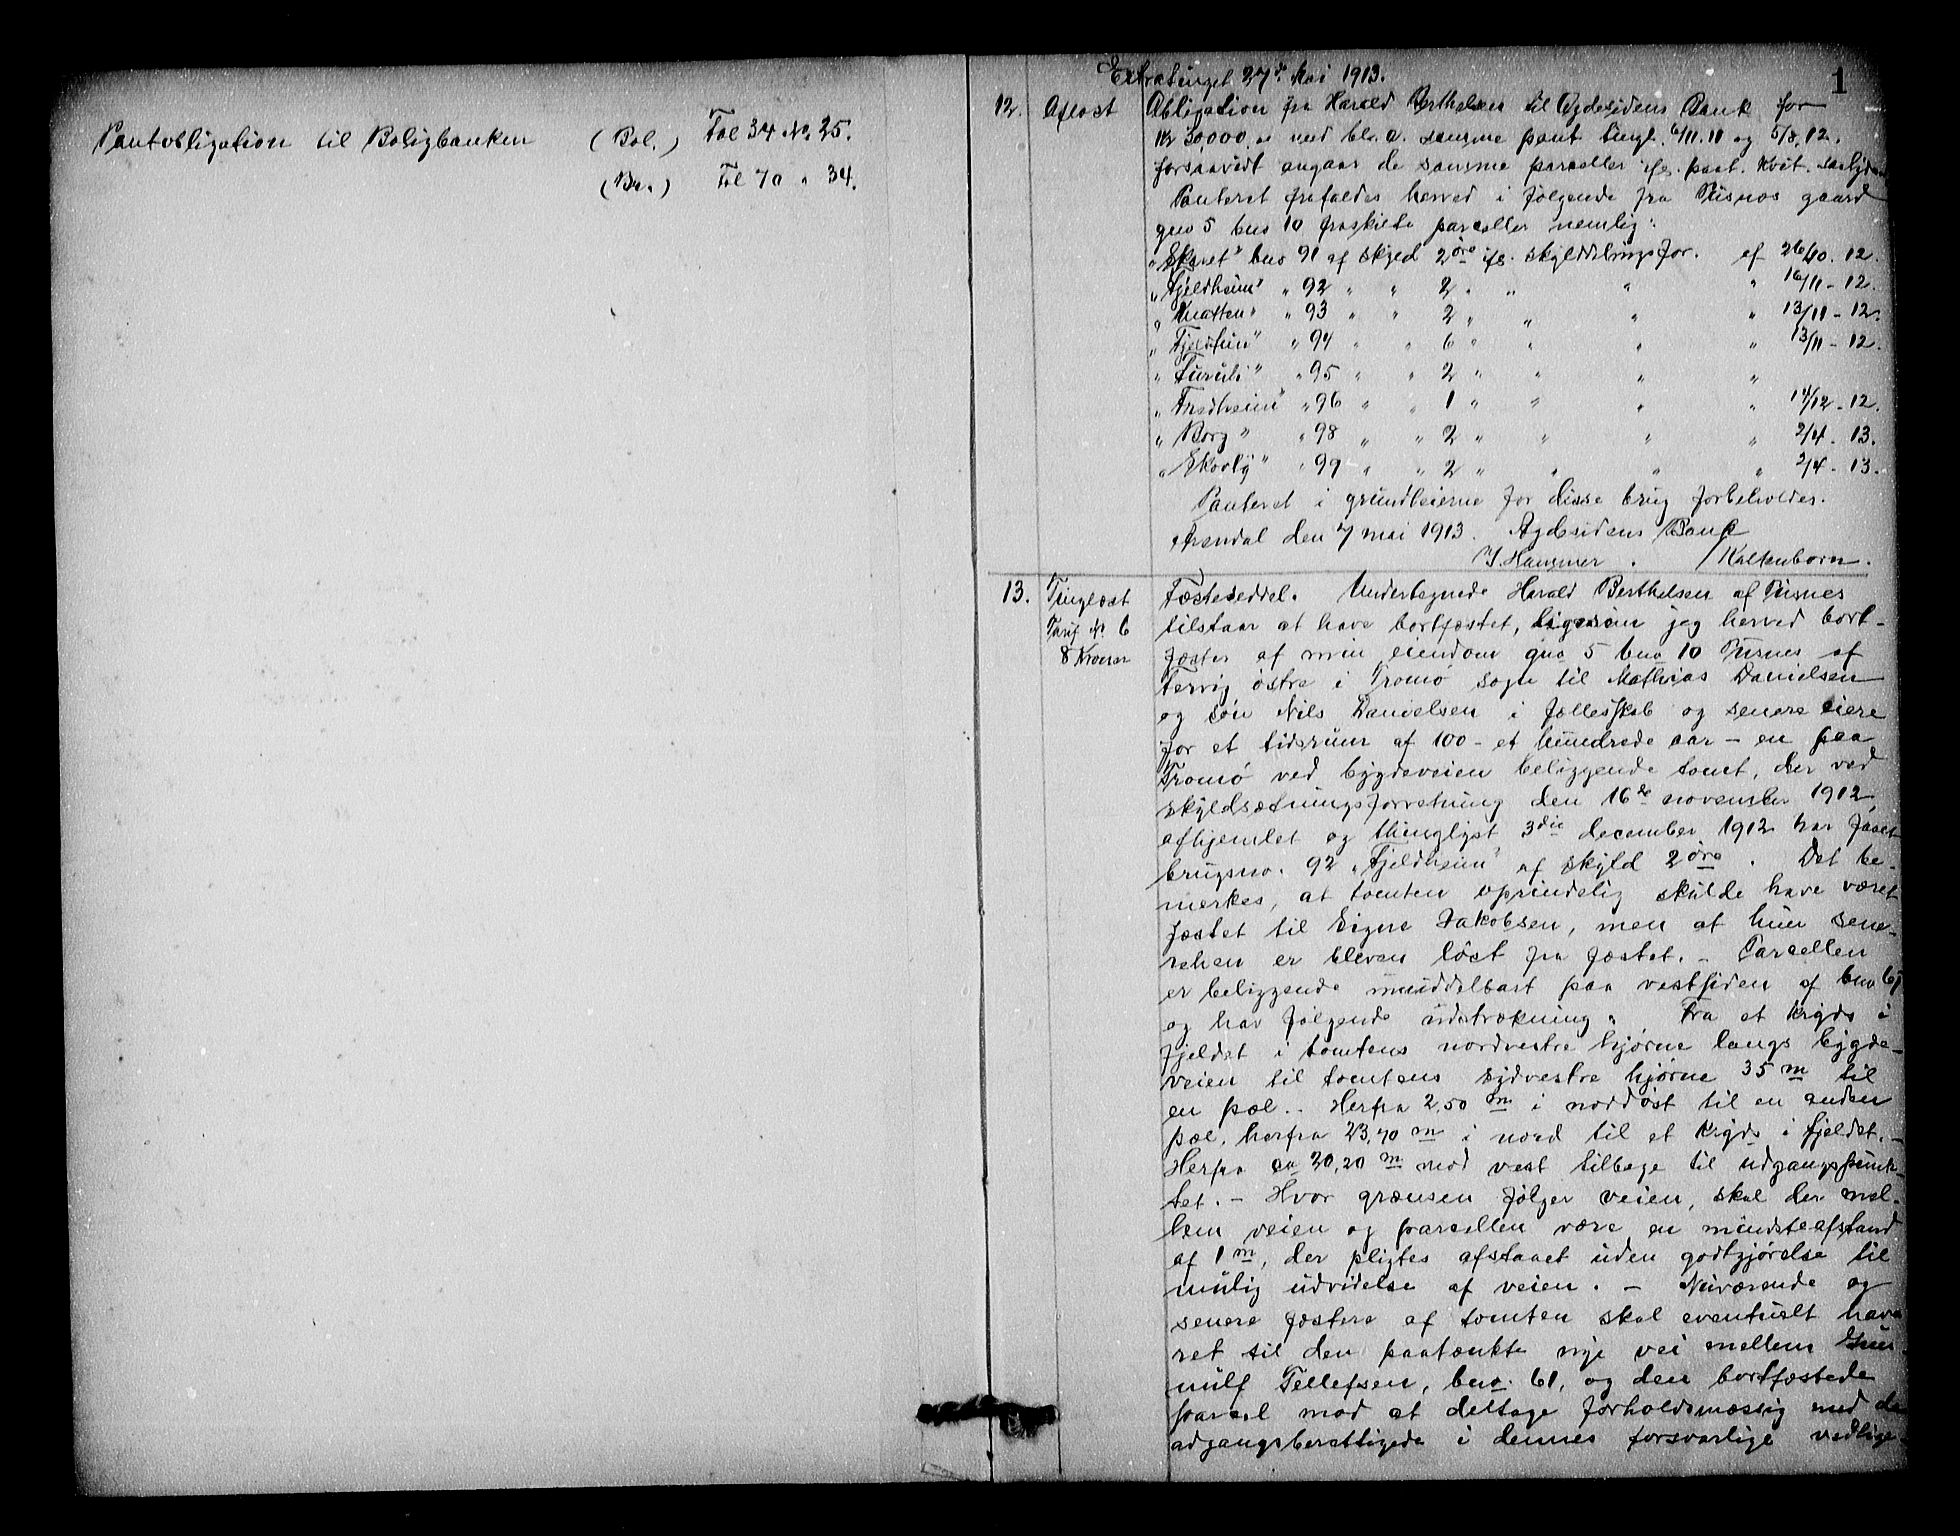 Pantobligation til Boligbanken (Bol.) Fol 34 No 25.
(Br.) Fol 70 " 34.
Extratinget 27de Mai 1913.
1
12. Aflæst Obligation fra Harald Berthelsen til Agdesidens Bank for
Kr 30,000.00 med bl. a. samme pant tingl. 6/11.11 og 5/8.12.
forsaavidt angaar de samme parceller ifg. paat. kvit. saalyd
Panteret frafaldes herved i følgende fra Pusnes gaard
gno 5 bno 10 fraskilte parceller nemlig:
„Ekaret" bno 91 af skyld 2 øre ifg. skylddelingsfor. af 26/10. 12.
„Fjeldheim" " 92 " " 2 " " " " 16/11 - 12.
„Natten" " 93 " " 2 " " " " 13/11 - 12.
" 94 " " 6 " " " " 13/11 - 12.
„Furuli" " 95 " " 2 " " " "
„Fredheim" " 96 " " 1 " " " " 14/12 - 12.
„Borg" " 98 " " 2 " " " " 2/4 - 13.
„Skovly" " 99 " " 2 " " " " 2/4 - 13.
Panteret i grundleierne for disse brug forbeholdes.
Arendal den 7 mai 1913. Agdesidens Bank
J. Hammer . / Kaltenborn.
13. Tinglæst Fæsteseddel. Undertegnede Harald Berthelsen af Pusnes
Tarif No 6 tilstaar at have bortfæstet, ligesom jeg herved bort-
8 Kroner fæster af min eiendom gno 5 bno 10 Pusnes af
Tervig østre i Tromø sogn til Mathias Danielsen
og søn Nils Danielsen i fællesskab og senere eiere
for et tidsrum af 100 - et hundrede aar - en paa
Tromø ved bygdeveien beliggende tomt, der ved
skyldsætningsforretning den 16de november 1912,
afhjemlet og thinglyst 3die december 1912 har faaet
brugsno. 92 „Fjeldheim" af skyld 2 øre . Det be-
merkes, at tomten oprindelig skulde have været
fæstet til Signe Jakobsen, men at hun sene-
rehen er bleven løst fra fæstet. - Parcellen
er beliggende umiddelbart paa vestsiden af bno 61
og har følgende udstrækning. Fra et kryds i
fjeldet i tomtens nordvestre hjørne langs bygde-
veien til tomtens sydvestre hjørne 35 m til
en pæl. - Herfra 2,50 m i nordøst til en anden
pæl, herfra 23,70 m i nord til et kryds i fjeldet. -
Herfra ca 20,20 m mod vest tilbage til udgangspunk-
tet. - Hvor grænsen følger veien, skal der mel-
lem veien og parcellen være en mindsteafstand
af 1 m, der pligtes afstaaet uden godtgjørelse til
mulig udvidelse af veien. - Nuværende og
senere fæstere af tomten skal eventuelt have
ret til den paatænkte nye vei mellem Gun-
nulf Tellefsen, bno. 61, og den bortfæstede
parcel mod at deltage forholdsmæssig med de
adgangsberettigede i dennes forsvarlige vedlige-